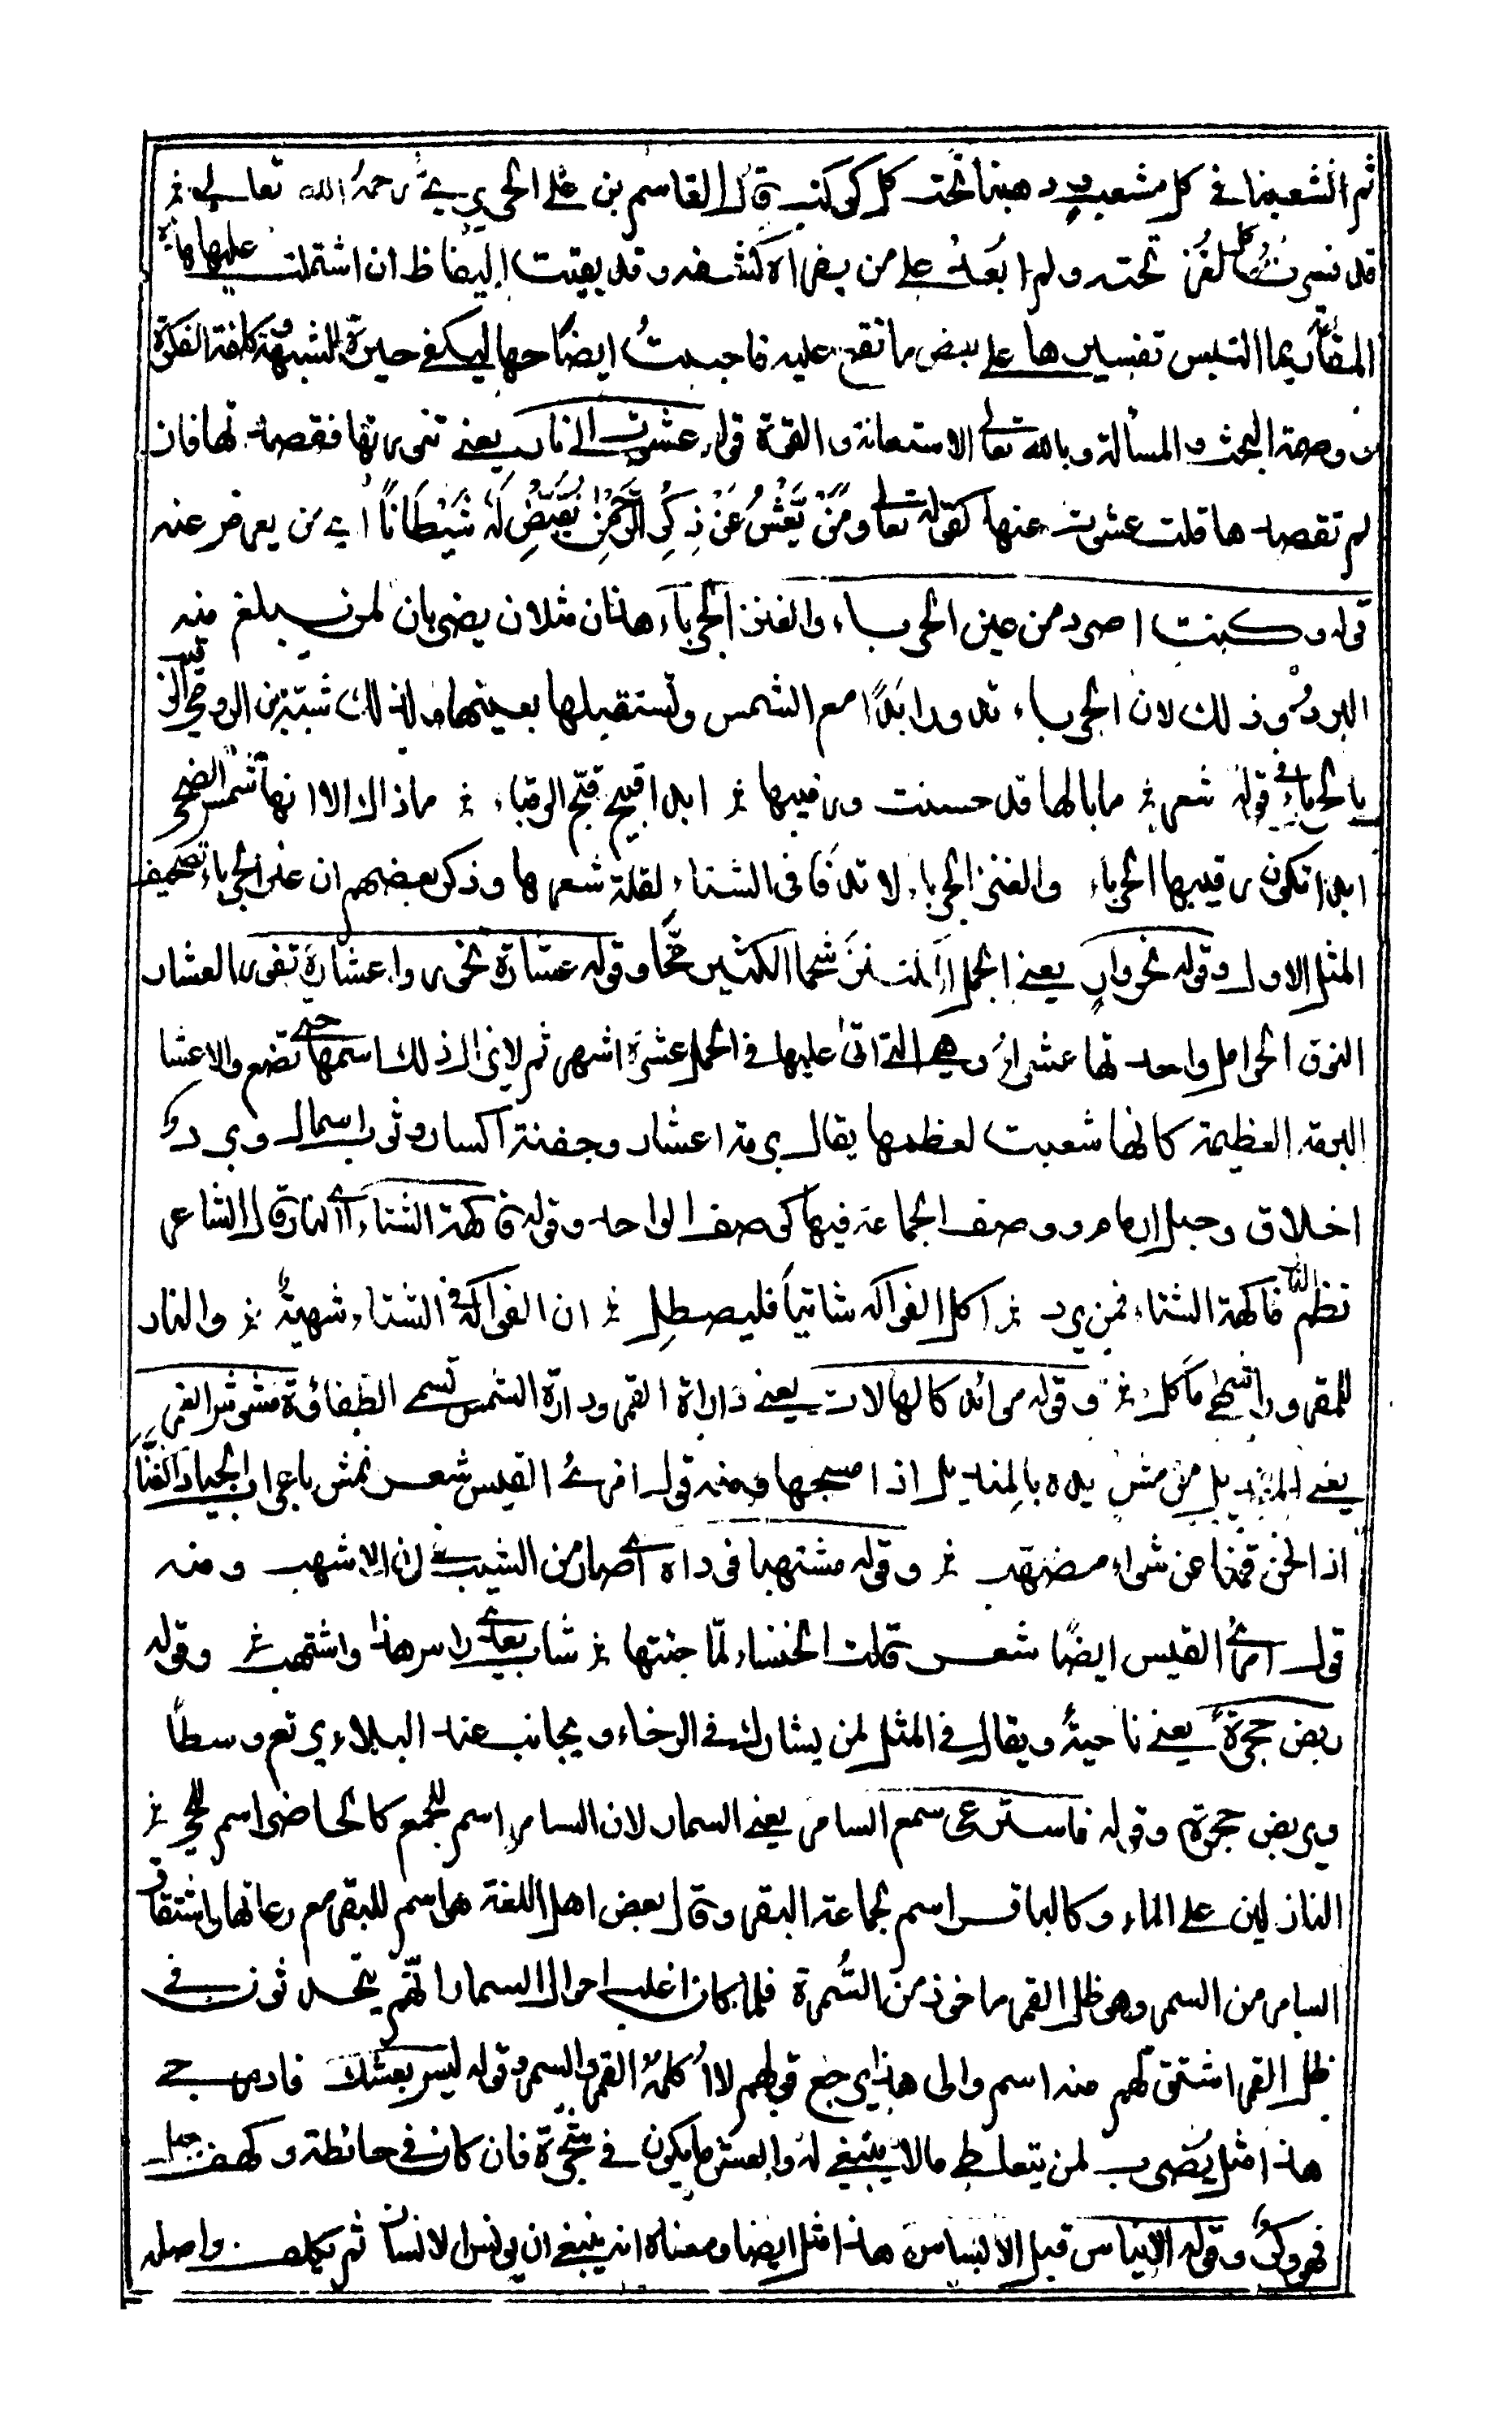 ثم انشعبنا في كل مشعب وذهبنا تحت كل كوكب قال القاسم بن علي الحريري رحمه الله تعالى
قد فسرت كل لغز تحته ولم ابعد على من يقراه كشفه وقد بقيت اليفاظ ان اشتملت عليها هذه
المقامة ربما التبس تفسيرها على بعض ما تقع عليه فاحببت ايضاحها ليكفى حيرة الشبهة وكلفة الفكرة
ووصمة البحث والمسألة وبالله تعالى الاستعانة والقوة قوله عشوت الى نار يعني تنورتها فقصدتها فان
لم تقصدها قلت عشوت عنها كقوله تعالى وَمَنْ يَّعْشُ عَنْ ذِكْرِ الرَّحْمٰنِ نُقَيِّضْ لَهٗ شَيْطَانًا اي من يعرض عنه
قوله وكنت اصرد من عين الحرباء والعنز الجرباء هذان مثلان يضربان لمن يبلغ منه
البرد وذلك لان الحرباء تدور ابدًا مع الشمس وتستقبلها بعينها ولذلك شبه ابن الرومي الرقيب
بالحرباء في قوله شعر ما بالها قد حسنت ورقيبها ابدا قبيح قبح الرقباء ما ذاك الا انها شمس الضحى
ابدا تكون رقيبها الحرباء والعنز الجرباء لا تدفأ في الشتاء لقلة شعرها وذكر بعضهم ان عنز الجرباء تصحيف
المثل الاول وقوله نحر وار يعني الجمل المكتنز شحما الكثير مخا وقوله عشاره تخور واعشاره تفور العشار
النوق الحوامل واحدتها عشراء وهي التي اتى عليها في الحمل عشرة اشهر ثم لا يزال ذلك اسمها حتى تضع والاعشار
البرمة العظيمة كانها شعبت لعظمها يقال برمة اعشار وجفنة اكسار وثوب اسمال وبرد
اخلاق وحبل ارمام ووصف الجماعة فيها كوصف الواحد وقوله فاكهة الشتاء اي النار قال الشاعر
نظم النار فاكهة الشتاء فمن يرد اكل الفواكه شاتيا فليصطل ان الفواكه في الشتاء شهية والنار
للمقرور اشهى ماكل وقوله موائد كالهالات يعني دارة القمر ودارة الشمس تسمى الطفاوة مشوش الغمر
يعني المنديل من مش يده بالمنديل اذا مسحها ومنه قول امرئ القيس شعر نمش باعراف الجياد اكفنا
اذا نحن قمنا عن شواء مضهب وقوله مشتهبا فوداه اي صار من الشيب في لون الاشهب ومنه
قول امرئ القيس ايضًا شعر قالت الخنساء لمّا جئتها شاب بعدي راس هذا واشتهب وقوله
ربض حجرة يعني ناحية ويقال في المثل لمن يشارك في الرخاء ويجانب عند البلاء يرتع وسطًا
ويربض حجرة وقوله فاسترعى سمع السامر يعني السمار لان السامر اسم للجمع كالحاضر اسم للحي
النازلين على الماء وكالباقر اسم لجماعة البقر وقال بعض اهل اللغة هو اسم للبقر مع رعاتها واشتقاق
السامر من السمر وهو ظل القمر ماخوذ من السُّمرة فلما كان اغلب احوال السمار انّهم يتحدثون في
ظل القمر اشتق لهم منه اسم والى هذا يرجع قولهم لا اكلمه القمر والسمر وقوله ليس بعشك فادرجي
هذا مثل يضرب لمن يتعاطى ما لا ينبغي له والعش ما يكون في شجرة فان كان في حائط او كهف جبل
فهو وكر وقوله الايناس قبل الابساس هذا مثل ايضا ومعناه انه ينبغي ان يونس الانسان ثم يكلف واصله